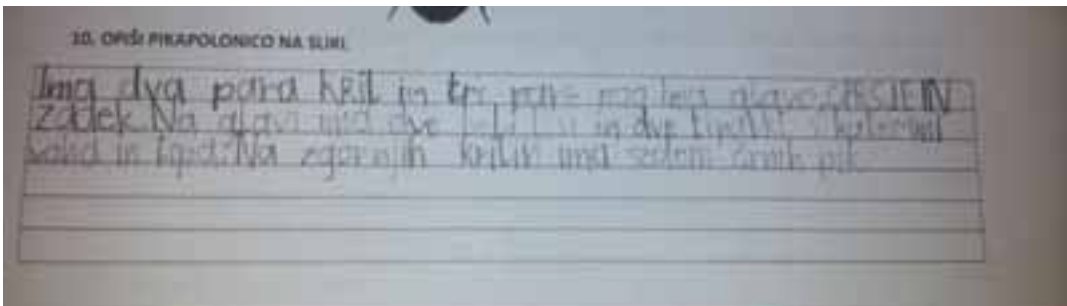 10. OPIŠI PIKAPOLONICO NA SLIKI.
Ima dva para kril in tri pare nog Ima glavo, OPRSJE IN
zadek. Na glavi ima dve in dve tipalki s katerimi
voha in tipa. Na zgornjih krilih ima sedem črnih pik